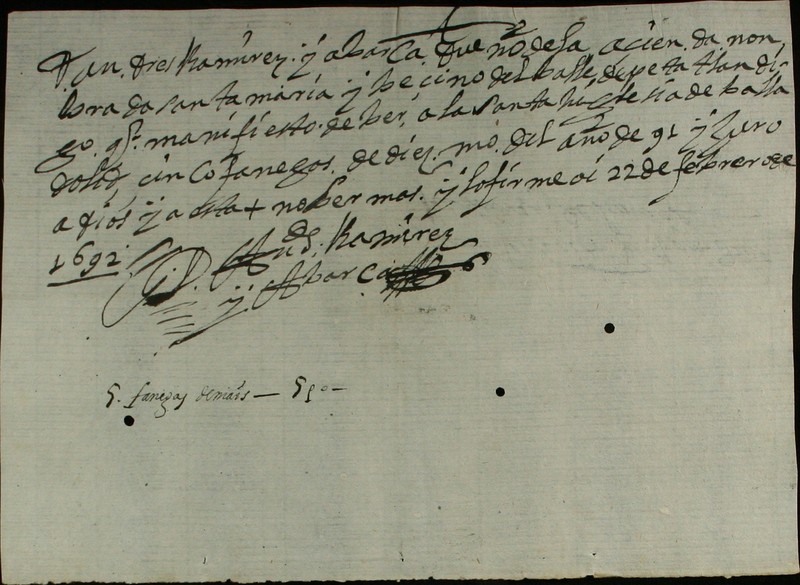 D. an. dres Ramirez. y abarca. dueño de la acien. da. non,
brada santa maria y becino del balle de petatlan di.
go. qe. manifiesto. deber, a la santa iglesia de balla
dolid cinco fanegas. de diez. mo. del año de 91 y juro
a dios y a esta + no ber mas. y lo firme oi 22 de febrero de
1692
D. Ands. Ramirez
y. Abarca
5. fanegas de mais — 5 fs —